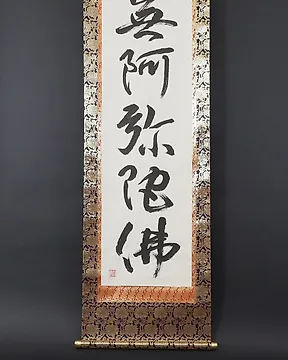 無阿弥陀佛